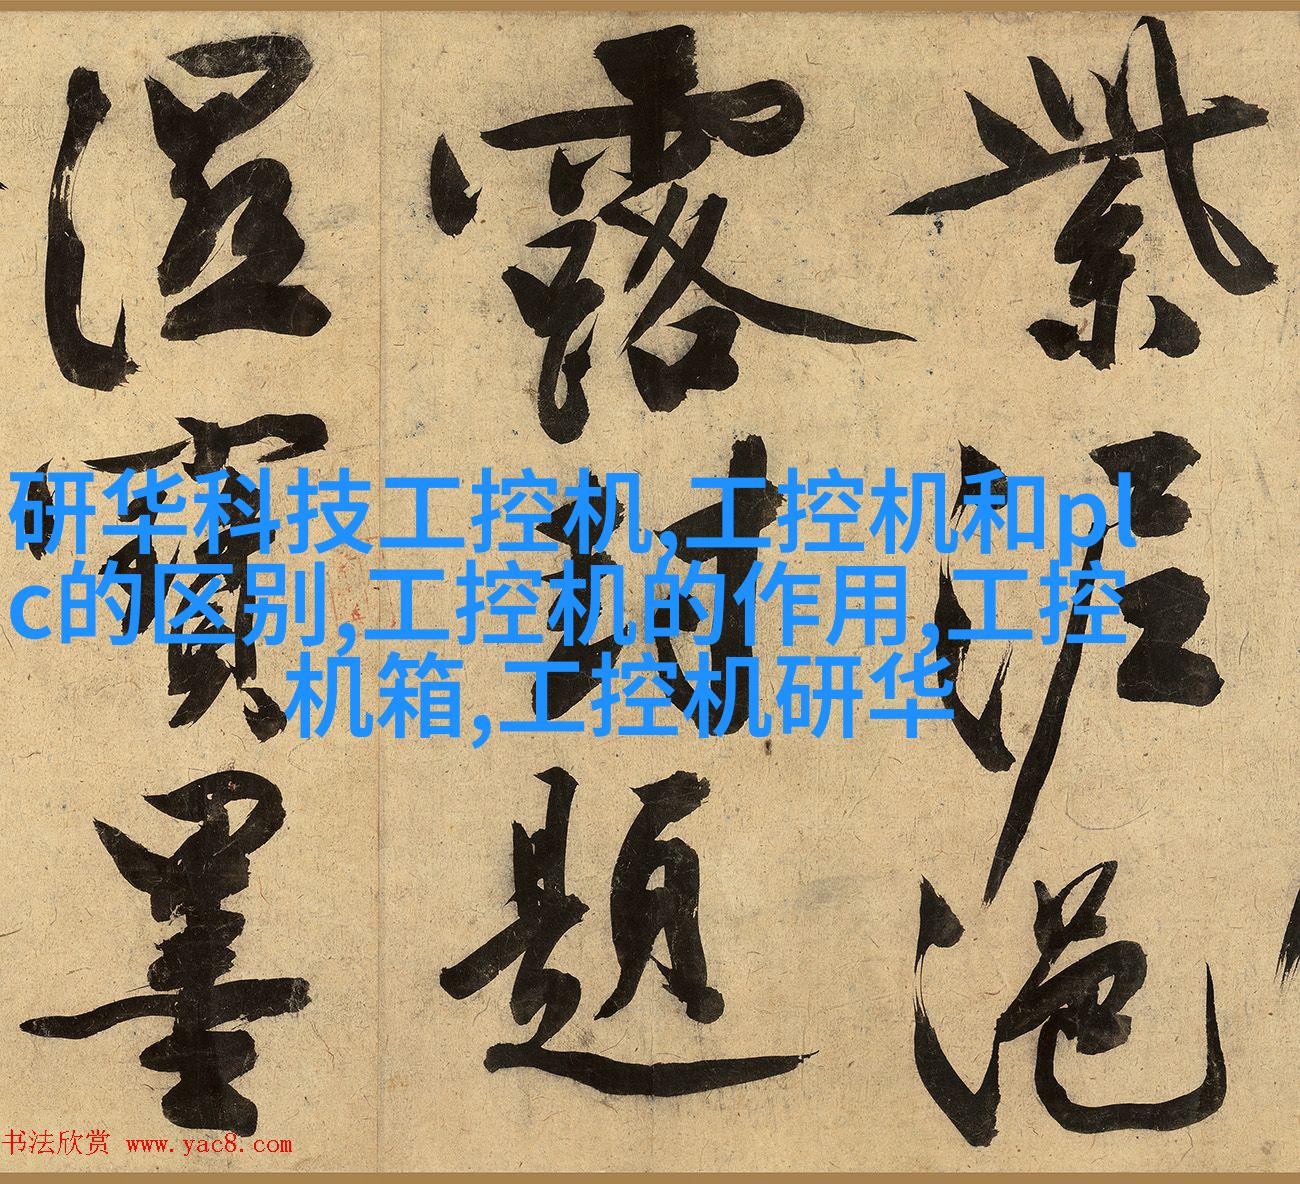 研华科技工控机,工控机和pl
c的区别,工控机的作用,工控
机箱,工控机研华
紫泥浥
露封題
溼寶墨
书法欣赏 www.yac8.com